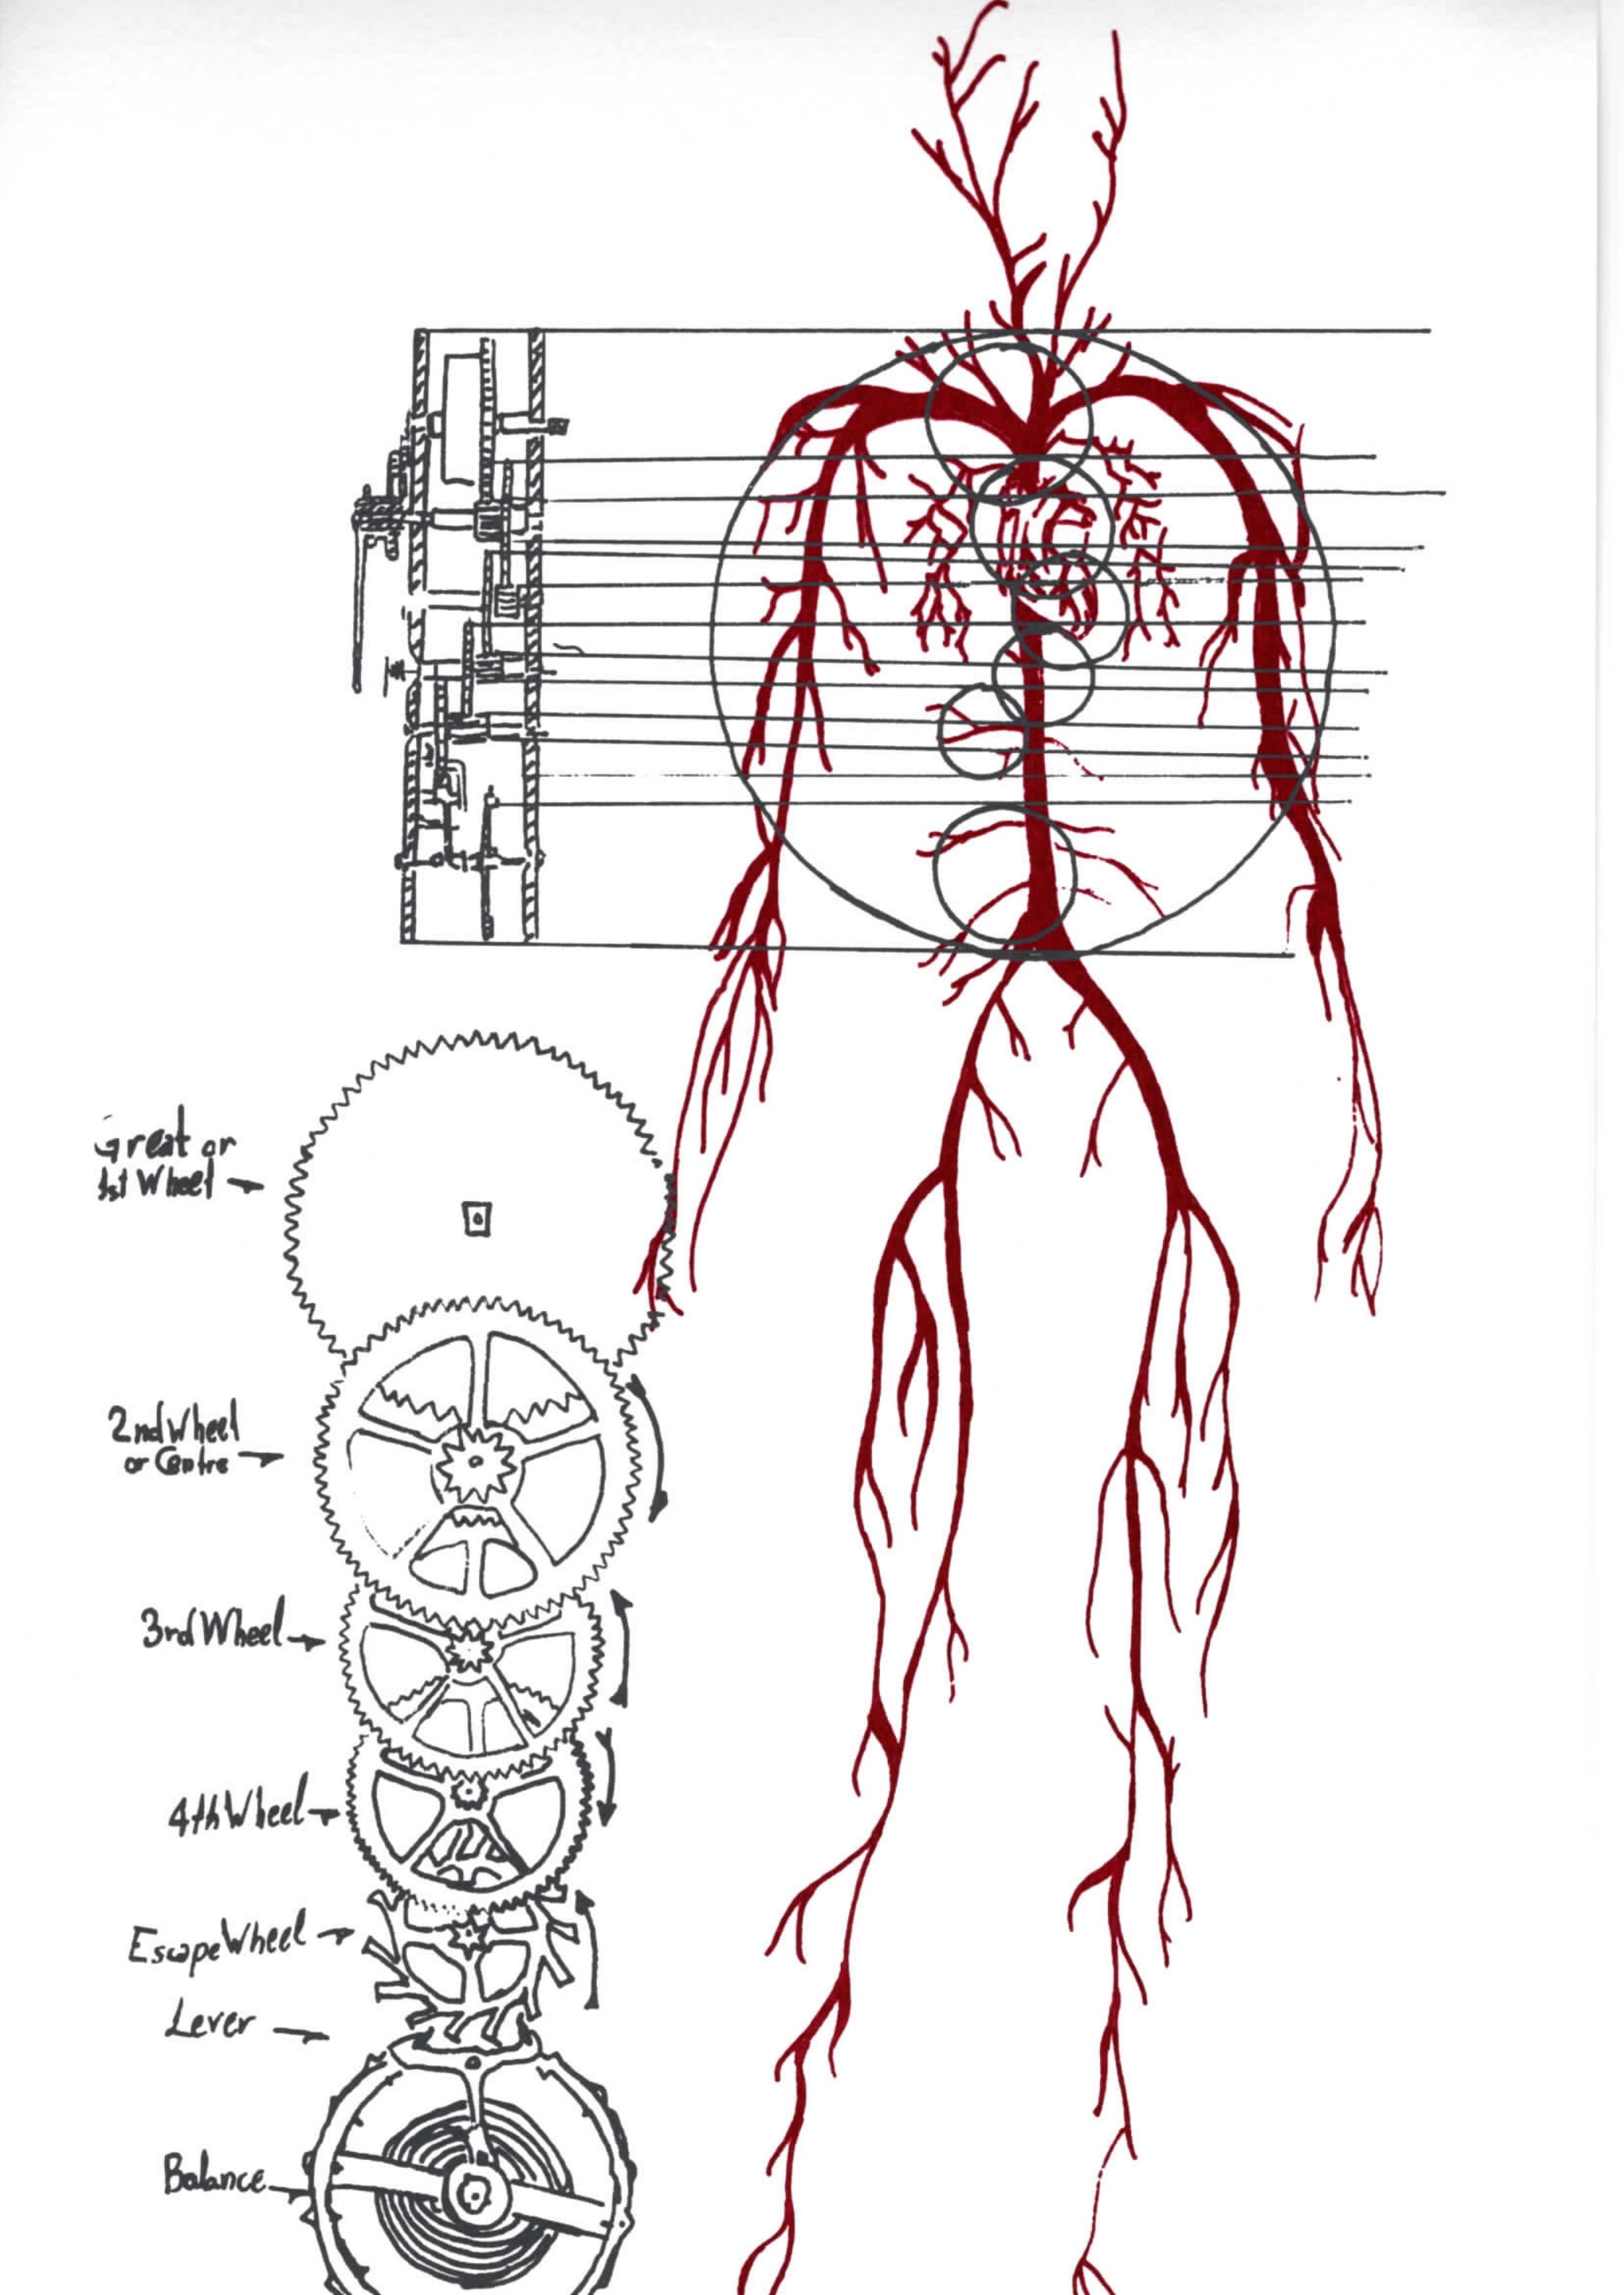 Great or
1st Wheel
2nd Wheel
or Centre
3rd Wheel
4th Wheel
Escape Wheel
Lever
Balance